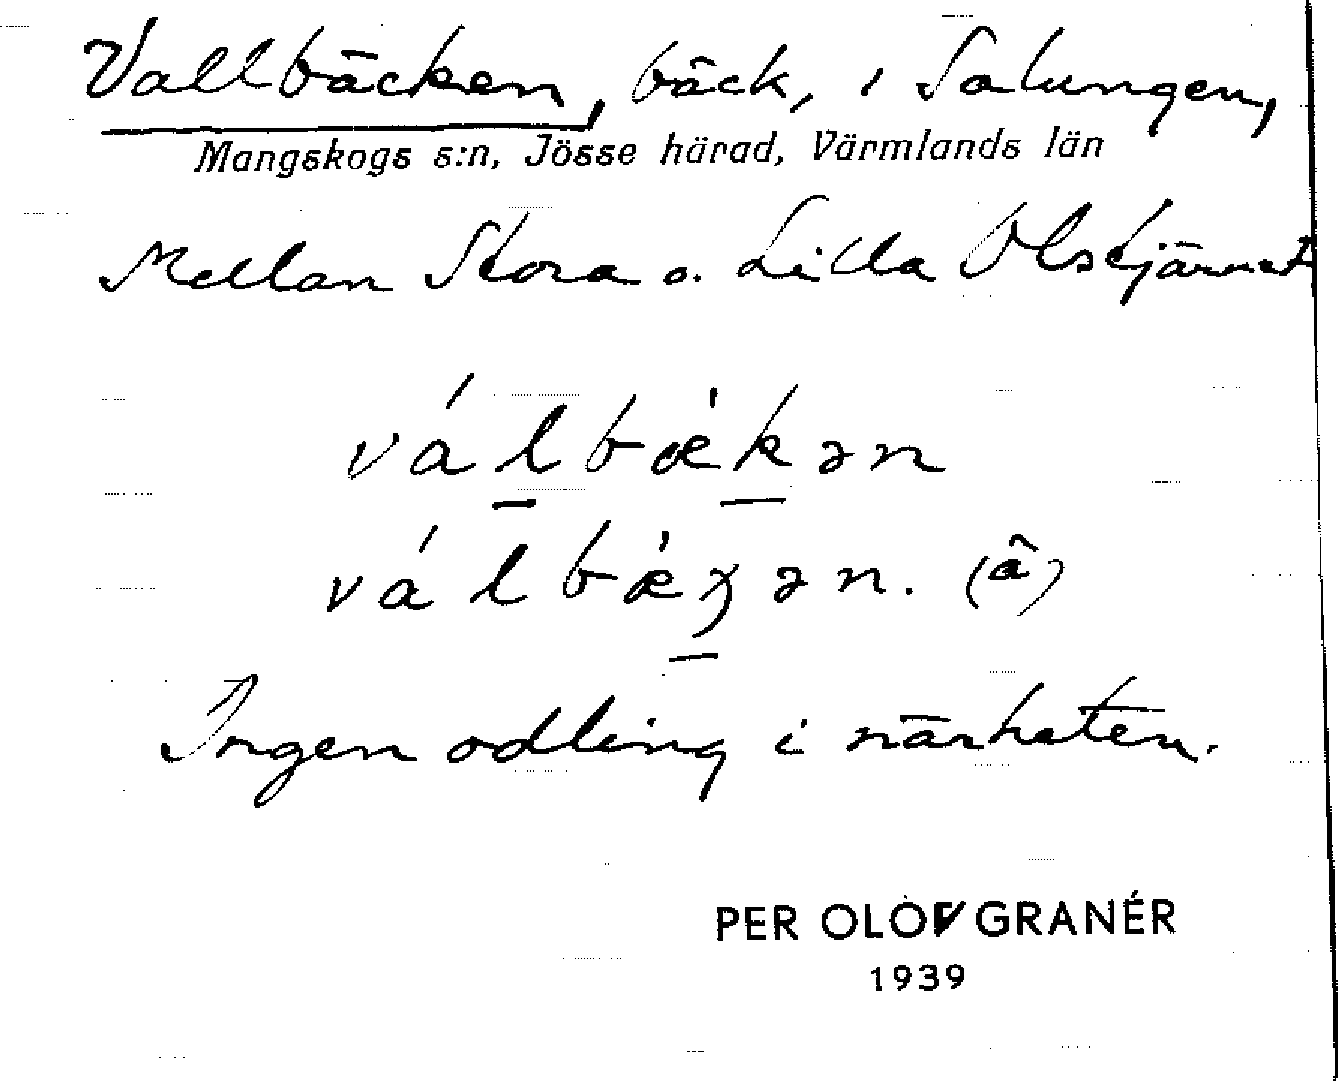 Vallbäcken, bäck, i Salungen,
Mangskogs s:n, Jösse härad, Värmlands län
Mellan Stora o. Lilla Olstjärnet
válbækən
válbæχən. (â)
Ingen odling i närheten.
PER OLOV GRANÉR
1939